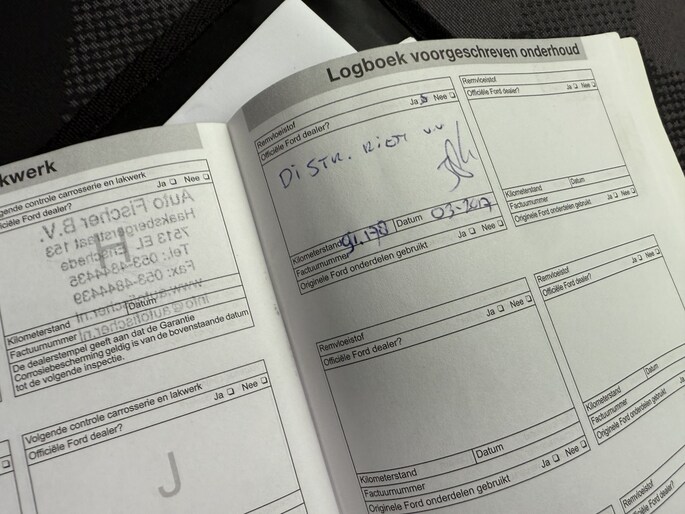 kwerk
gende controle carrosserie en lakwerk
Officiële Ford dealer?
Ja ❑ Nee ❑
Auto Fischer B.V.
Haaksbergerstraat 153
7513 EL Enschede
Tel.: 053-4844435
Fax: 053-4844439
www.autofischer.nl
info@autofischer.nl
H
Kilometerstand
Datum
Factuurnummer
De dealerstempel geeft aan dat de Garantie
Corrosiebescherming geldig is van de bovenstaande datum
tot de volgende inspectie.
Volgende controle carrosserie en lakwerk
Officiële Ford dealer?
Ja ❑ Nee ❑
J
Logboek voorgeschreven onderhoud
Remvloeistof
Officiële Ford dealer?
Ja ❑ Nee ❑
DISTR. RIEM
Kilometerstand 91.178 Datum 03-2017
Factuurnummer
Originele Ford onderdelen gebruikt Ja ❑ Nee ❑
Remvloeistof
Officiële Ford dealer?
Ja ❑ Nee ❑
Kilometerstand
Datum
Factuurnummer
Originele Ford onderdelen gebruikt Ja ❑ Nee ❑
Remvloeistof
Officiële Ford dealer?
Ja ❑ Nee ❑
Kilometerstand
Datum
Factuurnummer
Originele Ford onderdelen gebruikt
Ja ❑ Nee ❑
Remvloeistof
Officiële Ford dealer?
Kilometerstand
Datum
Factuurnummer
Originele Ford onderdelen gebruikt
Ja ❑
Remvloeistof
Officiële Ford dealer?